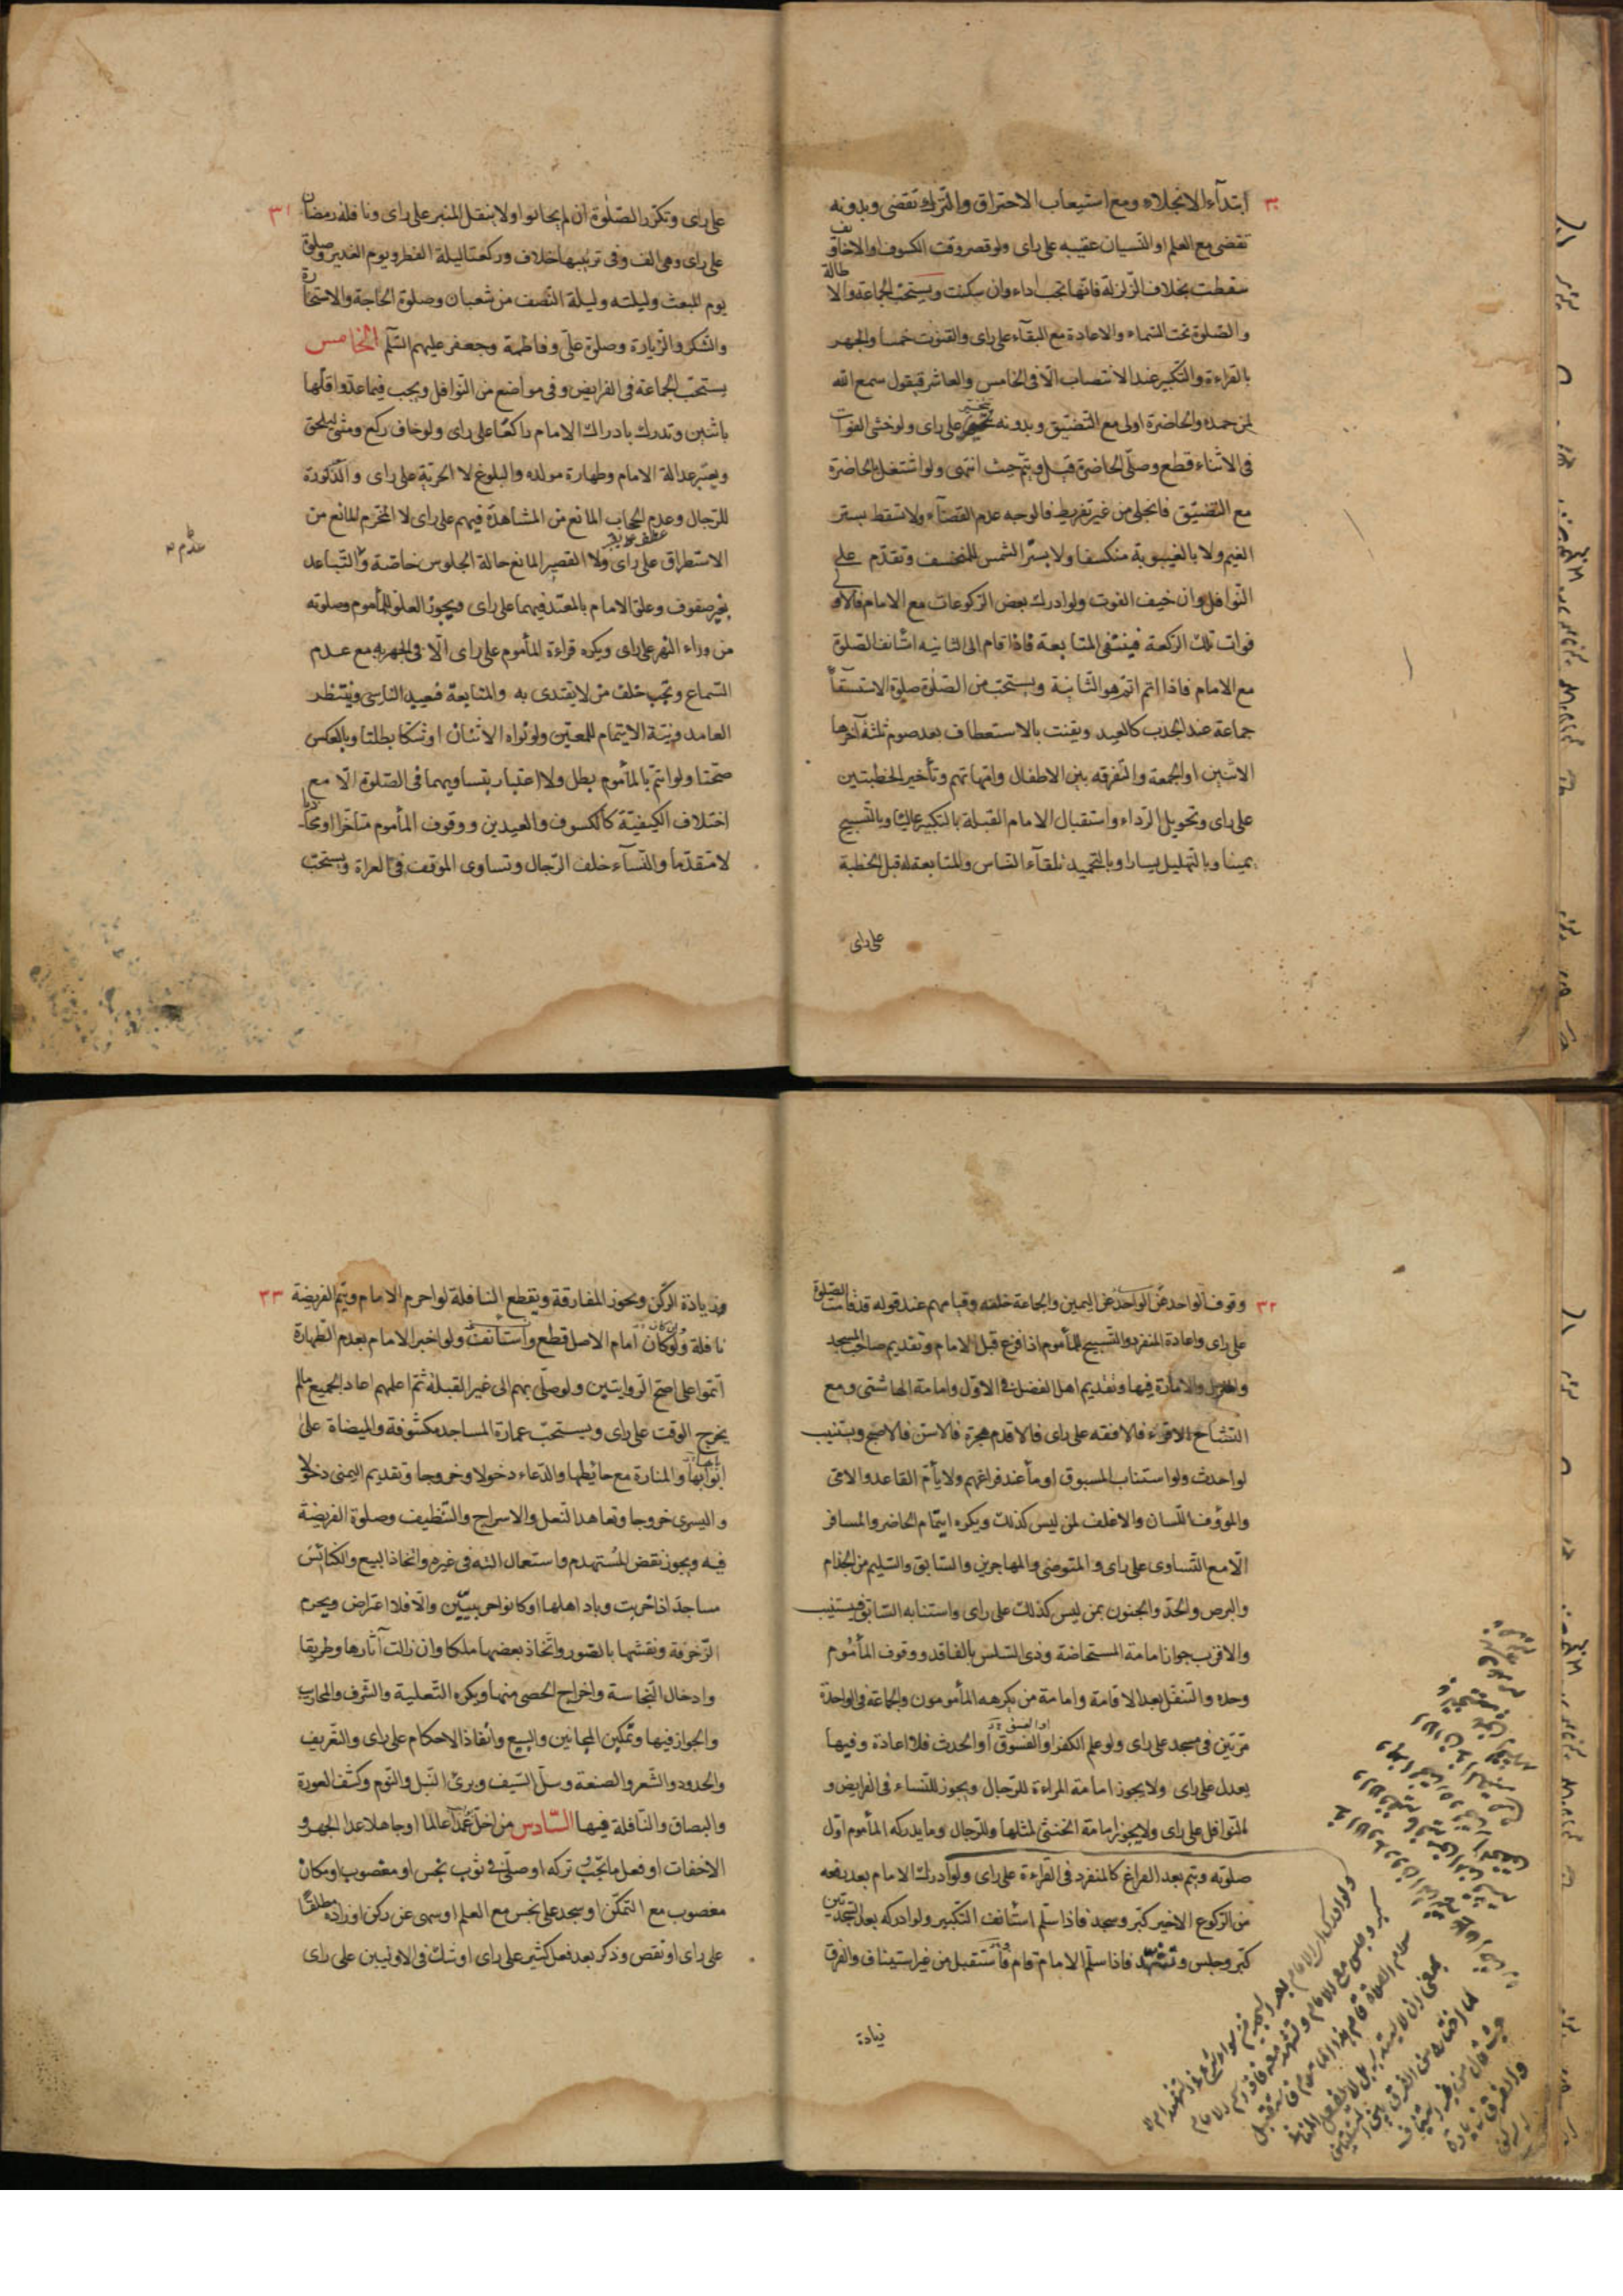 ٣٠
ابتدآء الانجلاء ومع استيعاب الاحتراق والترك تقضى وبدونه
تقضى مع العلم او النسيان عقيبه على راى ولو قصر وقت الكسوف او الاخاويف
سقطت بخلاف الزلزلة فانها تجب اداء وان سكنت ويستحب الجماعة والاطالة
والصلوة تحت السماء والاعادة مع البقآء على راى والقنوت خمسا والجهر
بالقراءة والتكبير عند الانتصاب الّا فى الخامس والعاشر فيقول سمع الله
لمن حمده والحاضرة اولى مع التضيّق وبدونه يتخير على راى ولو خشى الفوات
فى الاثناء قطع وصلّى الحاضرة قبل ويتم حيث انتهى ولو اشتغل بالحاضرة
مع التضيّق فانجلى من غير تفريط فالوجه عدم القضآء ولا تسقط بستر
الغيم ولا بالغيبوبة منكسفا ولا بستر الشمس للمنخسف وتقدّم على
النوافل وان خيف الفوت ولو ادرك بعض الركوعات مع الامام فالاولى
فوات تلك الركعة فينتفى المتابعة فاذا قام الى الثانيه استانف الصلوة
مع الامام فاذا اتم اتم هو الثانية ويستحبّ من الصلوة صلوة الاستسقآء
جماعة عند الجدب كالعيد ويقنت بالاستعطاف بعد صوم ثلثة آخرها
الاثنين او الجمعة والتفرقه بين الاطفال وامّهاتهم وتأخير الخطبتين
على راى وتحويل الرداء واستقبال الامام القبلة بالتكبير عاليا وبالتسبيح
يمينا وبالتهليل يسارا وبالتحميد تلقآء الناس والمتابعة له قبل الخطبة
على راى
٣١
على راى وتكرّر الصلوة ان لم يجابوا ولا ينقل المنبر على راى ونافلة رمضان
على راى وهى الف وفى ترتيبها خلاف وركعتا ليلة الفطر ويوم الغدير وصلوة
يوم المبعث وليلته وليلة النصف من شعبان وصلوة الحاجة والاستخارة
والشكر والزيارة وصلوة علىّ وفاطمة وجعفر عليهم السّلم الخامس
يستحبّ الجماعة فى الفرايض وفى مواضع من النوافل ويجب فيما عدّ واقلّها
باثنين وتدرك بادراك الامام راكعا على راى ولو خاف ركع ومشى ليلحق
ويعتبر عدالة الامام وطهارة مولده والبلوغ لا الحريّة على راى والذكورة
للرجال وعدم الحجاب المانع من المشاهدة فيهم على راى لا المخرم المانع من
الاستطراق على راى ولا القصير المانع حالة الجلوس خاصّة والتباعد
بغير صفوف وعلو الامام بالمعتد فيهما على راى ويجوز العلو للمأموم وصلوته
من وراء النهر على راى ويكره قراءة المأموم على راى الّا فى الجهريه مع عدم
السماع وتجب خلف من لا يقتدى به والمتابعة فيعيد الناسى وينتظر
العامد ونيّة الايتمام للمعيّن ولو نواه الاثنان او شكّا بطلتا وبالعكس
صحّتا ولو ائتمّ بالمأموم بطل ولا اعتبار بتساويهما فى الصلوة الّا مع
اختلاف الكيفيّة كالكسوف والعيدين ووقوف المأموم متأخرا او محاذيا
لا متقدّما والنسآء خلف الرجال وتساوى الموقف فى العراة ويستحبّ
٣٢
وقوف الواحد عن اليمين والجماعة خلفه وقيامهم عند قوله قد قامت الصلوة
على راى واعادة المنفرد والتسبيح للمأموم اذا فرغ قبل الامام وتقديم صاحب المسجد
والمنزل والامارة فيها وتقديم اهل الفضل فى الاوّل وامامة الهاشمى ومع
التشاح الاقرء فالافقه على راى فالاقدم هجرة فالاسن فالاصبح ويستنيب
لو احدث ولو استناب المسبوق اومأ عند فراغهم ولا يأتمّ القاعد والامّى
والمؤوف اللسان والاغلف لمن ليس كذلك ويكره ايتمام الحاضر والمسافر
الّا مع التساوى على راى والمتوضى والمهاجرين والسابق والسليم من الجذام
والبرص والحدّ والجنون بمن ليس كذلك على راى واستنابه السابق فيستنيب
والاقرب جواز امامة المستحاضة وذى السلس بالفاقد ووقوف المأموم
وحده والتنفّل بعد الاقامة وامامة من يكرهه المأمومون والجماعة فى الواحدة
مرّتين فى مسجد على راى ولو علم الكفر او الفسوق او الحدث فلا اعادة وفيها
يعدل على راى ولا يجوز امامة المراءة للرجال ويجوز للنساء فى الفرايض و
النوافل على راى ولا يجوز امامة الخنثى لمثلها وللرجال وما يدركه المأموم اوّل
صلوته ويتم بعد الفراغ كالمنفرد فى القراءة على راى ولو ادرك الامام بعد رفعه
من الركوع الاخير كبّر وسجد فاذا سلّم استأنف التكبير ولو ادركه بعد السجدتين
كبّر وجلس وتشهد فاذا سلّم الامام قام فاستقبل من غير استيناف والفرق
زيادة
٣٣
وزيادة الركن ويجوز المفارقة ويقطع النافلة لو احرم الامام ويتم الفريضة
نافلة ولو كان امام الاصل قطع واستانف ولو اخبر الامام بعدم الطهارة
اتمّوا على اصحّ الروايتين ولو صلّى بهم الى غير القبلة ثمّ اعلمهم اعاد الجميع مالم
يخرج الوقت على راى ويستحبّ عمارة المساجد مكشوفة والميضاة على
ابوابها والمنارة مع حائطها والدعاء دخولا وخروجا وتقديم اليمنى دخولا
واليسرى خروجا وتعاهد النعل والاسراج والتنظيف وصلوة الفريضة
فيه ويجوز نقض المستهدم واستعمال آلته فى غيره واتخاذ البيع والكنائس
مساجد اذا خربت وباد اهلها او كانوا حربيين والّا فلا اعتراض ويحرم
الزخرفة ونقشها بالصور واتخاذ بعضها ملكا وان زالت آثارها وطريقا
وادخال النجاسة واخراج الحصى منها ويكره التعلية والشرف والمحاريب
والجواز فيها وتمكين المجانين والبيع وانفاذ الاحكام على راى والتعريف
والحدود والشعر والصنعة وسلّ السيف وبرى النبل والنوم وكشف العورة
والبصاق والنافلة فيها السادس من اخلّ عمدا عالما او جاهلا عدا الجهر و
الاخفات او فعل ما يجب تركه او صلّى فى ثوب نجس او مغصوب او مكان
مغصوب مع التمكّن او سجد على نجس مع العلم او سهى عن ركن او زاده مطلقا
على راى او نقص وذكر بعد فعل كثير على راى او شك فى الاوليين على راى